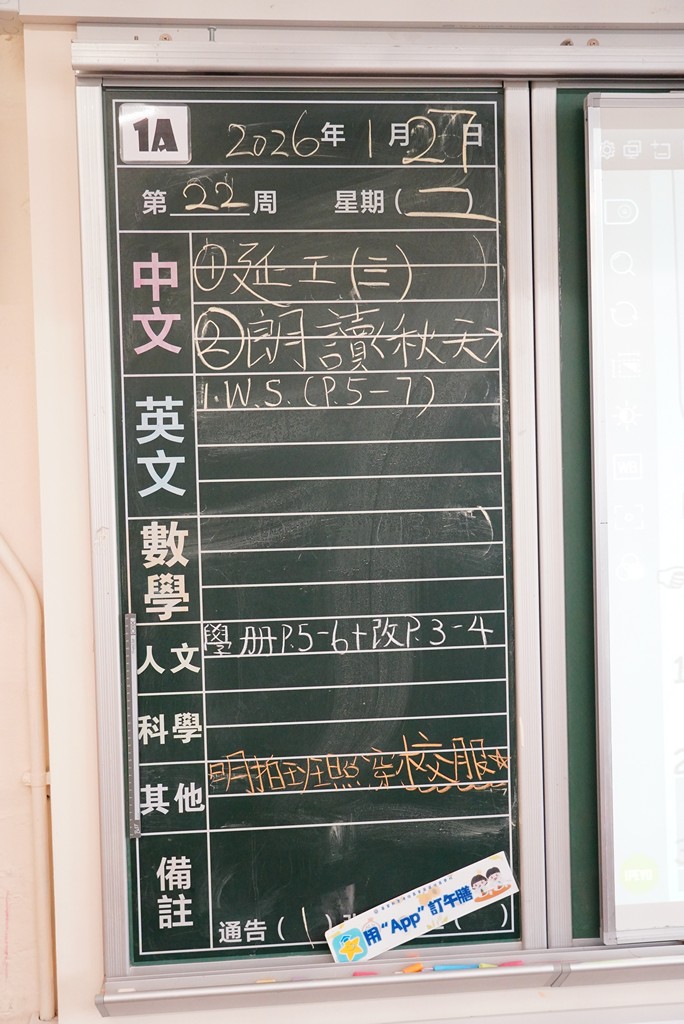 1A 2026年1月27日
第22周 星期(二)
中文
①延工(三)
②朗讀〈秋天〉
英文
1.W.S.(P.5-7)
數學
人文
學册P.5-6+改P.3-4
科學
其他
明拍班照穿校服☆
備註
通告(1)
用"App"訂午膳